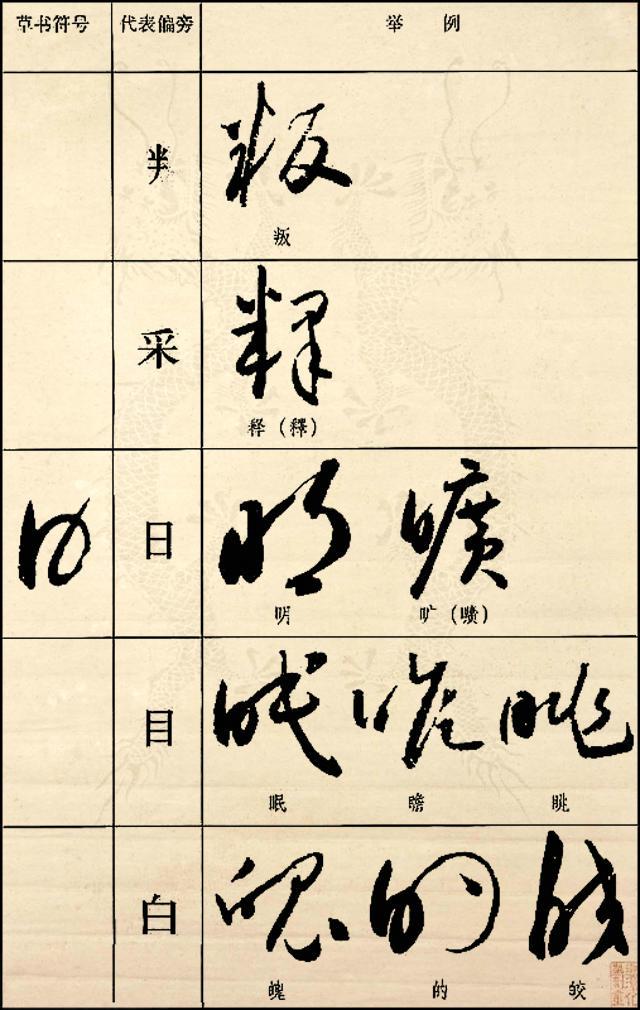 草书符号 代表偏旁 举例
叛
采
释（釋）
日
明 旷（曠）
目
眠 瞻 眺
白
魄 的 皎